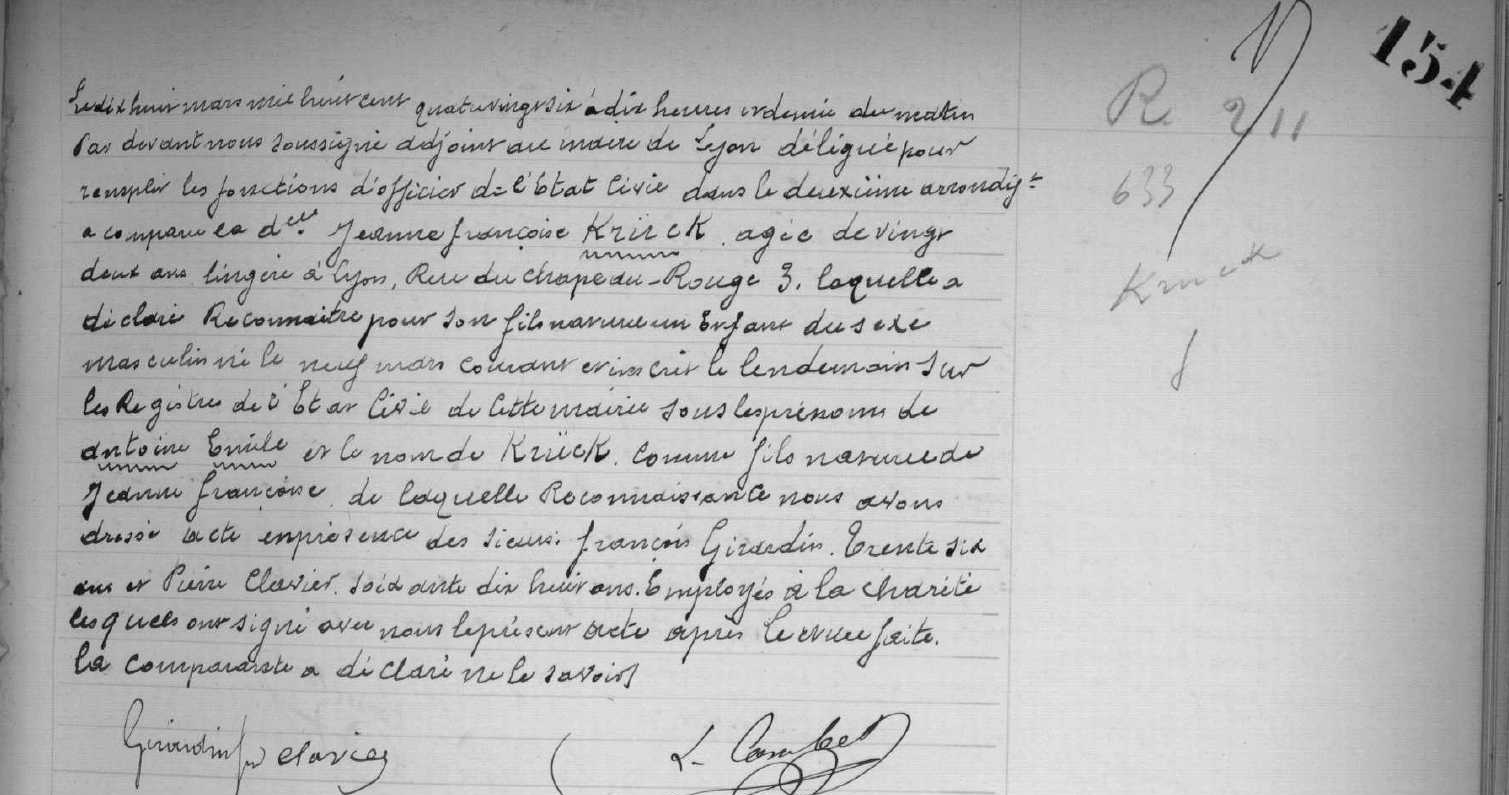 154
R. 211
633
Kruck
Le dix huit mars mil huit cent quatrevingt six à dix heures et demie du matin
Par devant nous soussigné adjoint au maire de Lyon délégué pour
remplir les fonctions d'officier de l'Etat Civil dans le deuxième arrondist
a comparu la dlle Jeanne françoise Krück. agée de vingt
deux ans lingère à Lyon, Rue du Chapeau-Rouge 3. laquelle a
déclaré Reconnaitre pour son fils naturel un Enfant du sexe
masculin né le neuf mars courant et inscrit le lendemain sur
les Registres de l'Etat Civil de Cette mairie sous les prénoms de
antoine Emile et le nom de Krück. Comme fils naturel de
Jeanne françoise. de laquelle Reconnaissance nous avons
dressé acte en présence des sieurs. françois Girardin. Trente six
ans et Pierre Clavier. soixante dix huit ans. Employés à la Charité
lesquels ont signé avec nous le présent acte après lecture faite.
la Comparante a déclaré ne le savoir
Girardin fs Clavier L. Combet